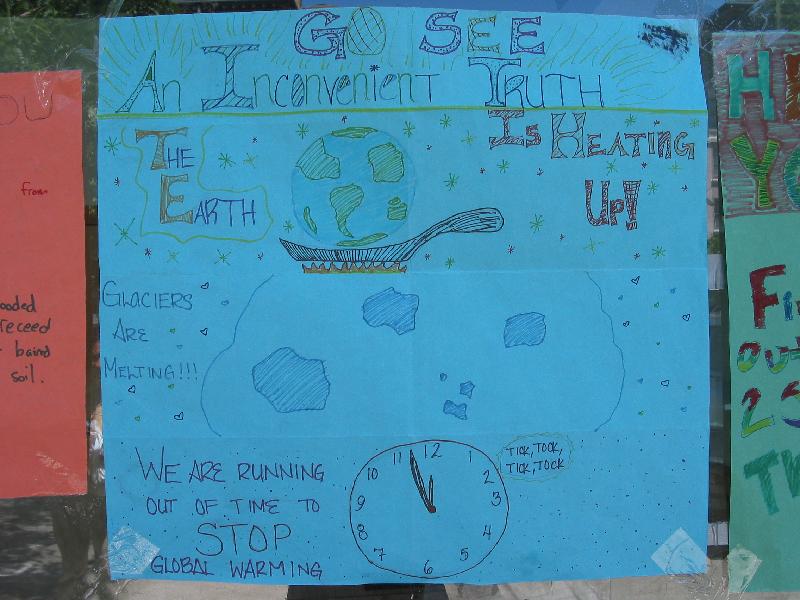 GO SEE
AN INCONVENIENT TRUTH
THE EARTH
IS HEATING UP!
GLACIERS
ARE
MELTING!!!
WE ARE RUNNING
OUT OF TIME TO
STOP
GLOBAL WARMING
11 12 1
10 2
9 3
8 4
7 6 5
TICK, TOCK,
TICK, TOCK
OU
from
receed
soil.
H
Y